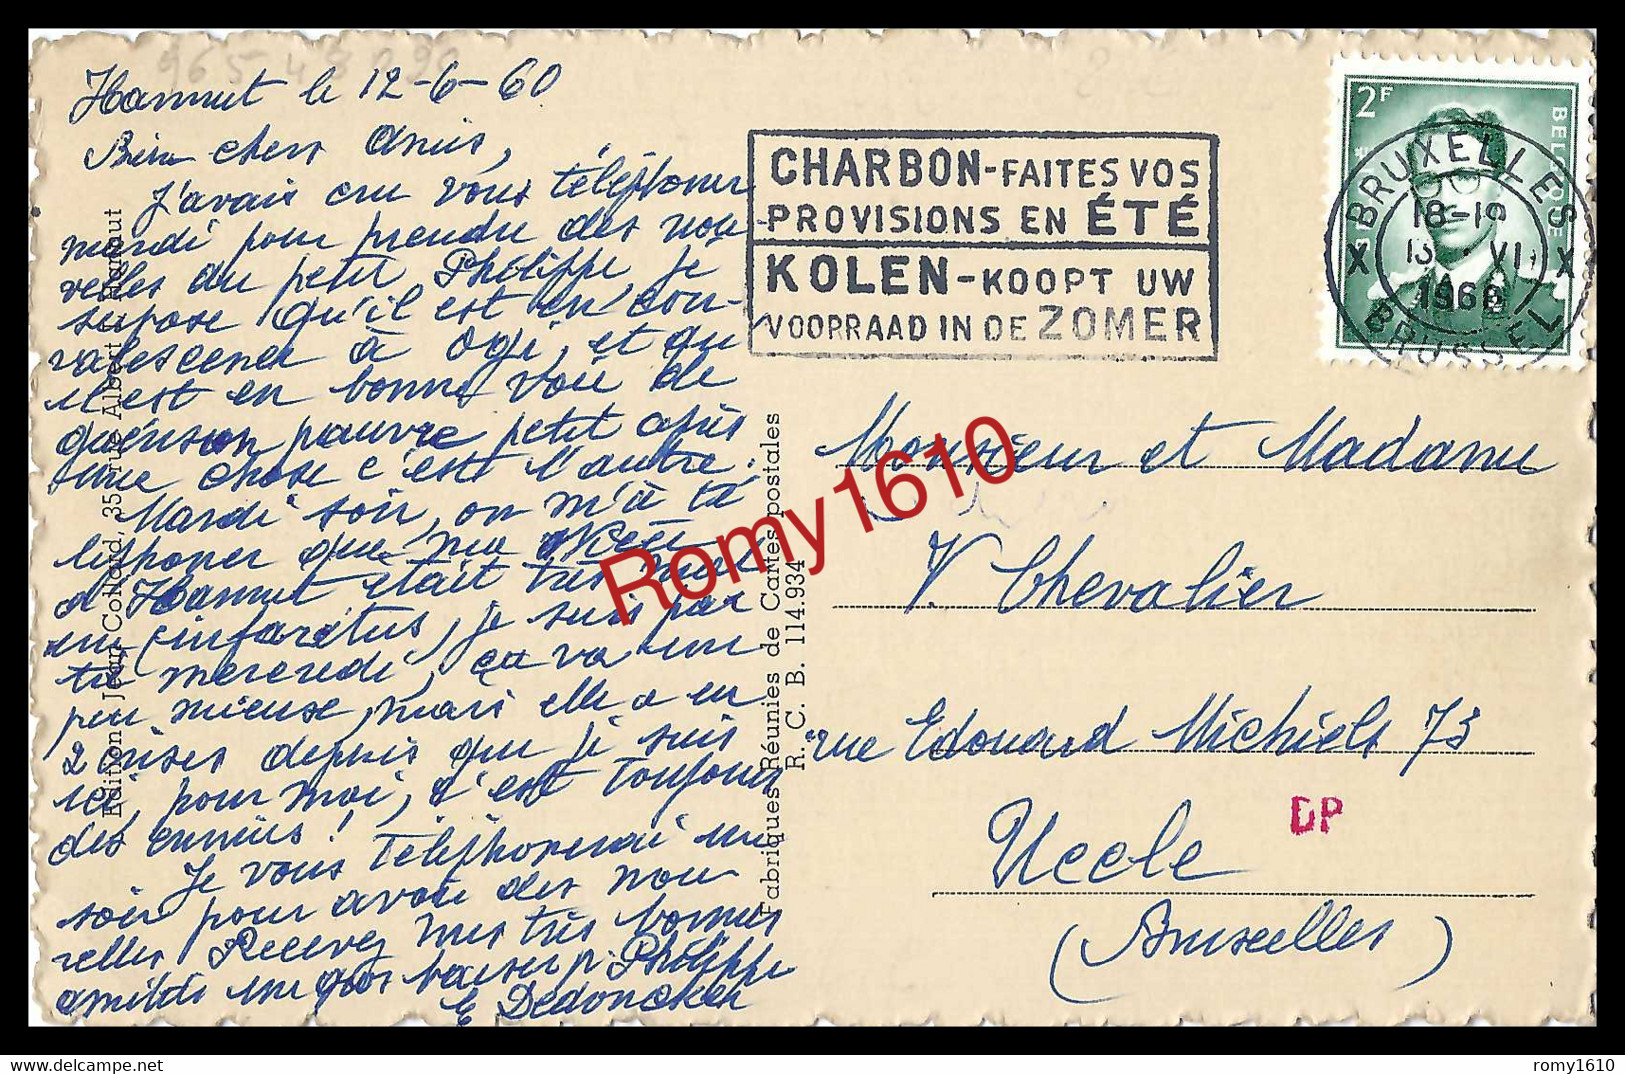 Hannut le 12-6-60
Bien chers amis,
J'avais cru vous téléphoner
mardi pour prendre des nou-
velles du petit Philippe, je
suppose qu'il est en con-
valescence à ogi, et qu
il est en bonne voie de
guérison pauvre petit après
une chose c'est l'autre.
Mardi soir, on m'à té
lephoner que ma
d'Hannut était très mal
un infarctus, je suis par
tie mercredi, ça va un
peu mieuse, mais elle a eu
2 crises depuis que je suis
ici, pour moi, c'est toujours
des ennuis!
Je vous téléphonerai un
soir pour avoir des nou
velles Recevez mes très bonnes
amitiés un gros baiser p. Philippe
E Dedoncker
Edition Jean Collard, 35, rue Albert Ier, Hannut
Fabriques Réunies de Cartes postales
R. C. B. 114.934
CHARBON-FAITES VOS
PROVISIONS EN ÉTÉ
KOLEN-KOOPT UW
VOORRAAD IN DE ZOMER
2F
BELGIE BELGIQUE
X BRUXELLES X
18-19
13 VI
1960
BRUSSEL
Monsieur et Madame
V. Chevalier
rue Edouard Michiels 73
Uccle
(Bruxelles)
DP
Romy1610
delcampe.net
romy1610